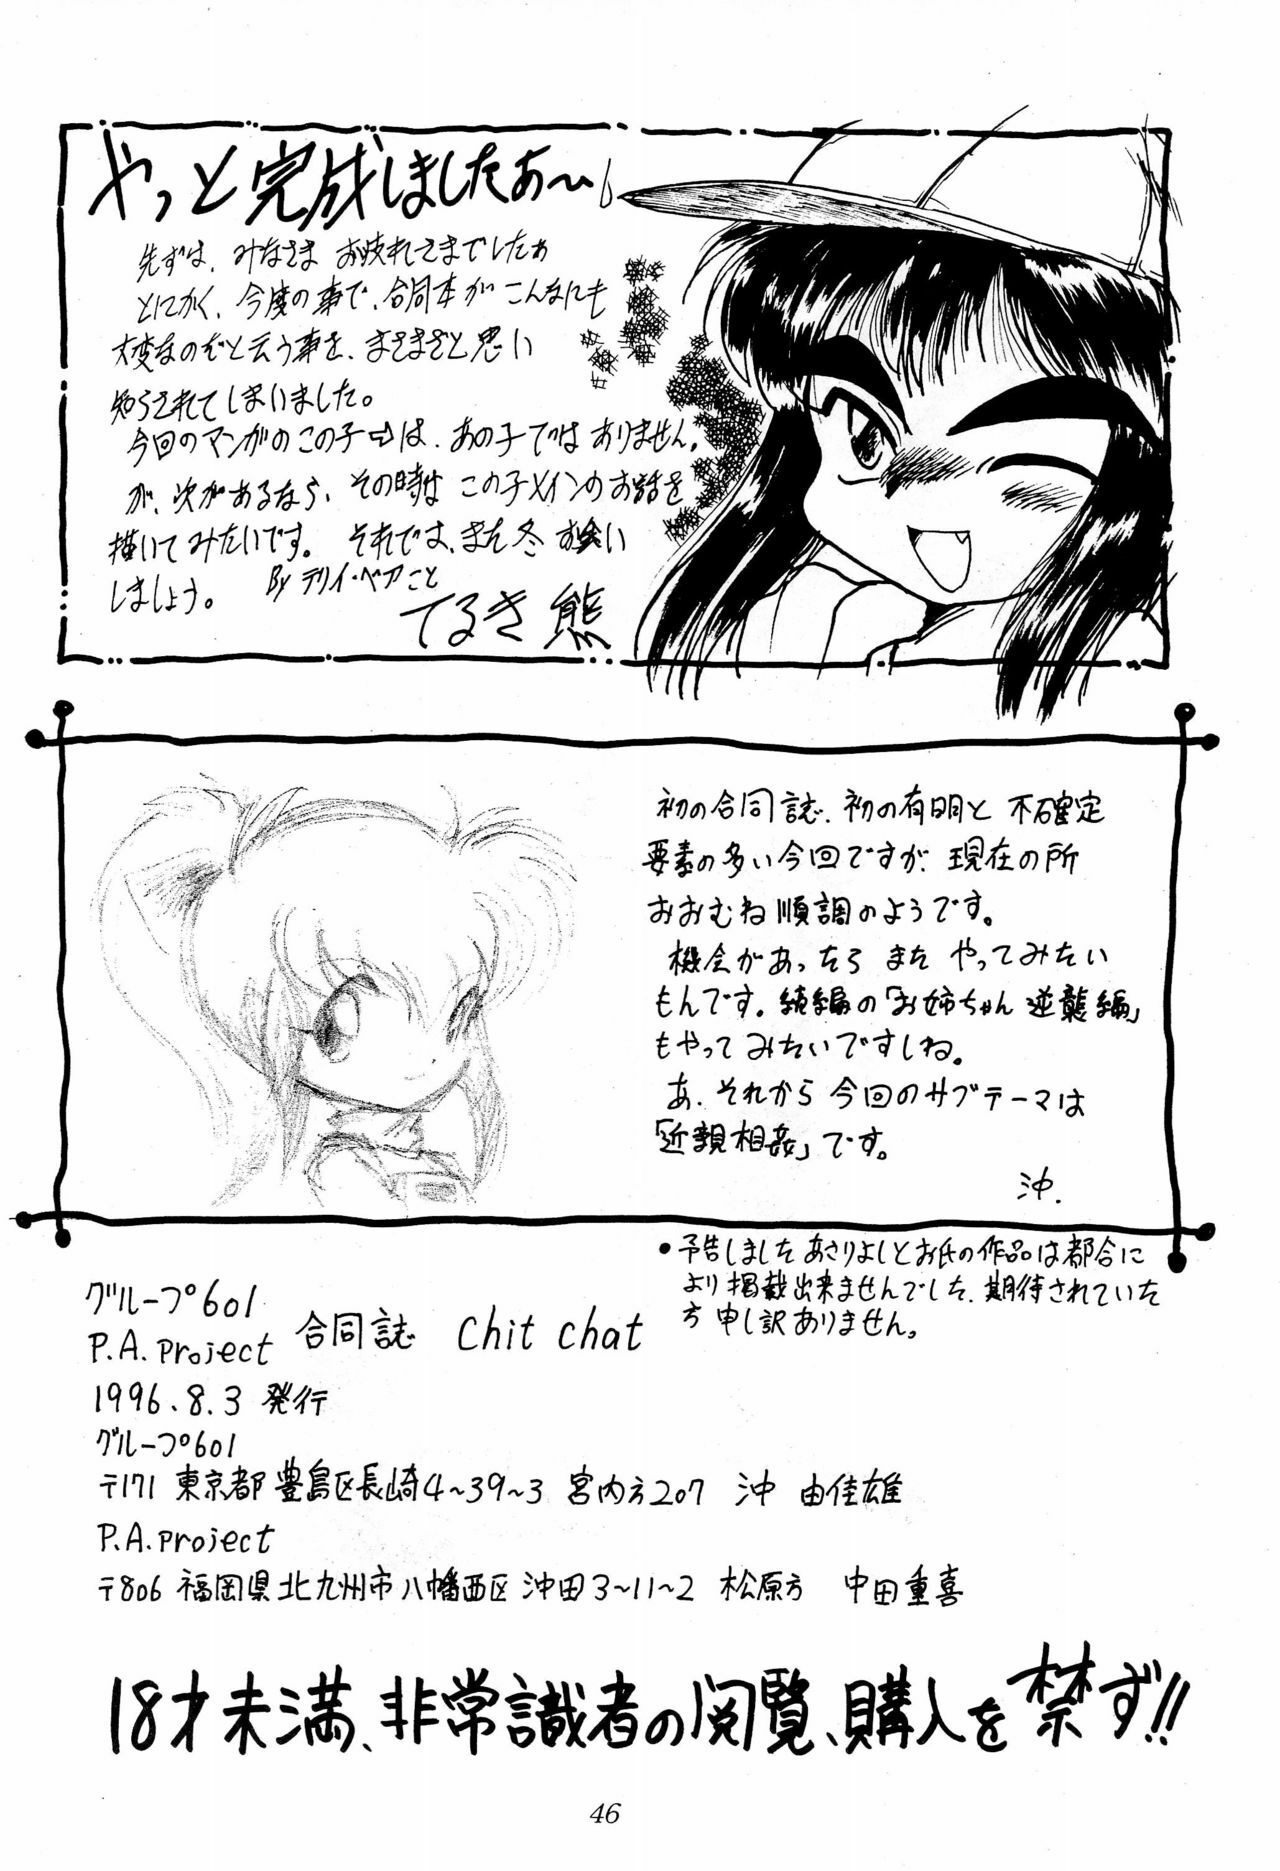 やっと完成しましたぁ〜
先ずは、みなさま お疲れさまでしたぁ
とにかく、今度の事で、合同本がこんなにも
大変なのだと云う事を、まざまざと思い
知らされてしまいました。
今回のマンガのこの子⇨は、あの子ではありません。
が、次があるなら、その時は この子メインのお話を
描いてみたいです。 それでは、また冬お会い
しましょう。 By テリィ・ベアこと
てるき熊
初の合同誌、初の有明と 不確定
要素の多い今回ですが、現在の所
おおむね順調のようです。
機会があったら また やってみたい
もんです。続編の「お姉ちゃん 逆襲編」
もやってみたいですしね。
あ、それから 今回のサブテーマは
「近親相姦」です。
沖.
●予告しましたあさりよしとお氏の作品は都合に
より掲載出来ませんでした、期待されていた
方 申し訳ありません。
グループ601
P.A.Project 合同誌 Chit chat
1996.8.3 発行
グループ601
〒171 東京都豊島区長崎4〜39〜3 宮内方207 沖 由佳雄
P.A.Project
〒806 福岡県北九州市八幡西区沖田3〜11〜2 松原方 中田重喜
18才未満、非常識者の閲覧、購入を禁ず!!
46